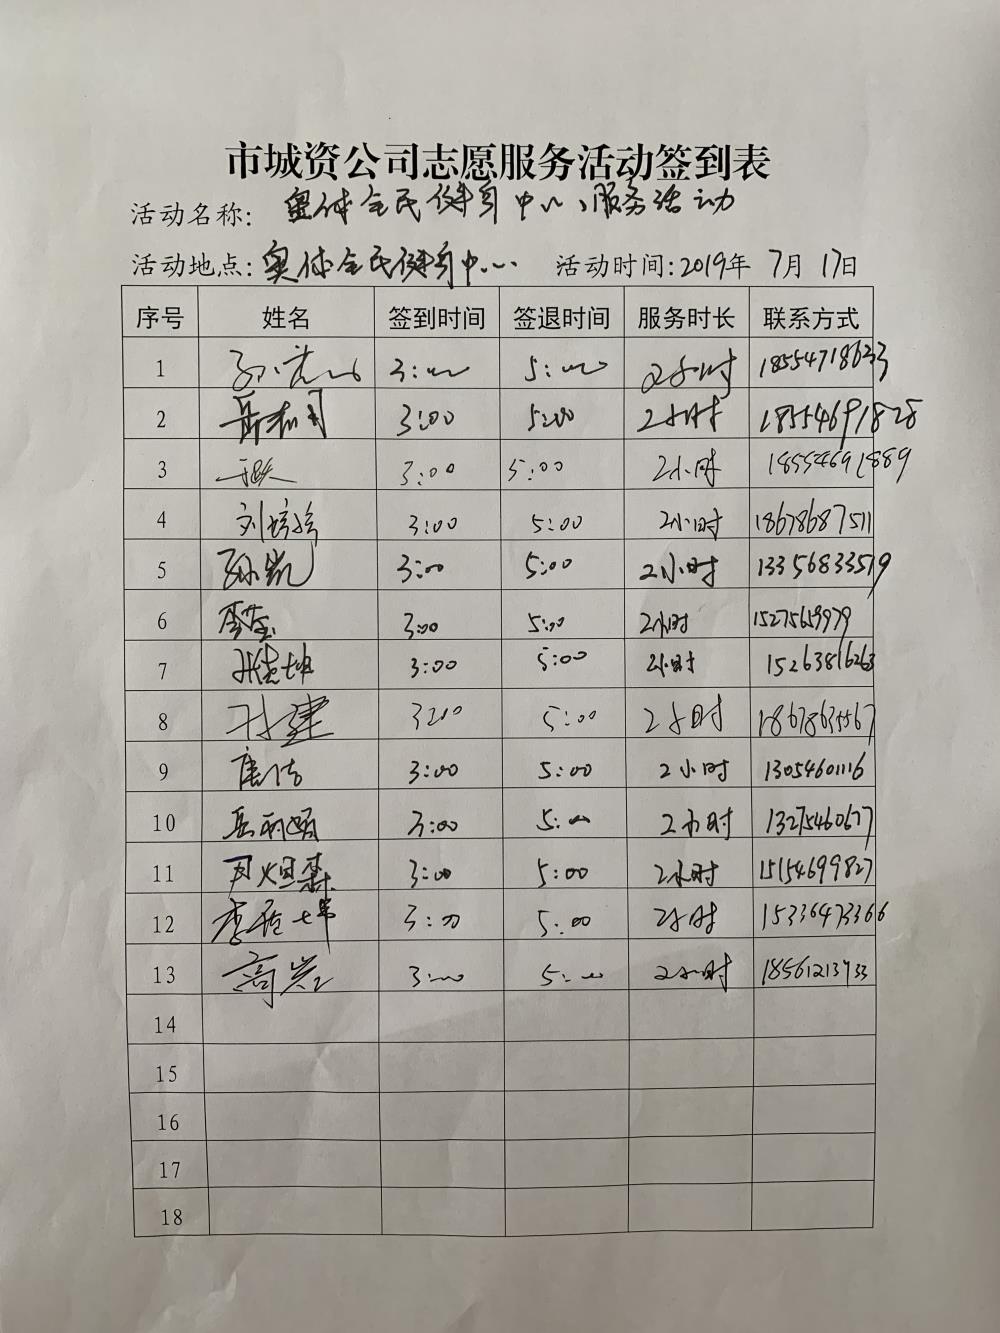 市城资公司志愿服务活动签到表
活动名称: 奥体全民健身中心服务活动
活动地点: 奥体全民健身中心 活动时间: 2019年 7月 17日
序号 姓名 签到时间 签退时间 服务时长 联系方式
1 3:00 5:00 2小时 18554718633
2 3:00 5:00 2小时 18554691828
3 3:00 5:00 2小时 18554691889
4 刘婷婷 3:00 5:00 2小时 18678687511
5 孙凯 3:00 5:00 2小时 13356833519
6 李莹 3:00 5:00 2小时 15275659979
7 张志坤 3:00 5:00 2小时 15263816263
8 3:00 5:00 2小时 18678635567
9 唐洁 3:00 5:00 2小时 13054601116
10 3:00 5:00 2小时 13275460677
11 尹烜森 3:00 5:00 2小时 15154699827
12 3:00 5:00 2小时 15336473366
13 高岩 3:00 5:00 2小时 18561213933
14
15
16
17
18